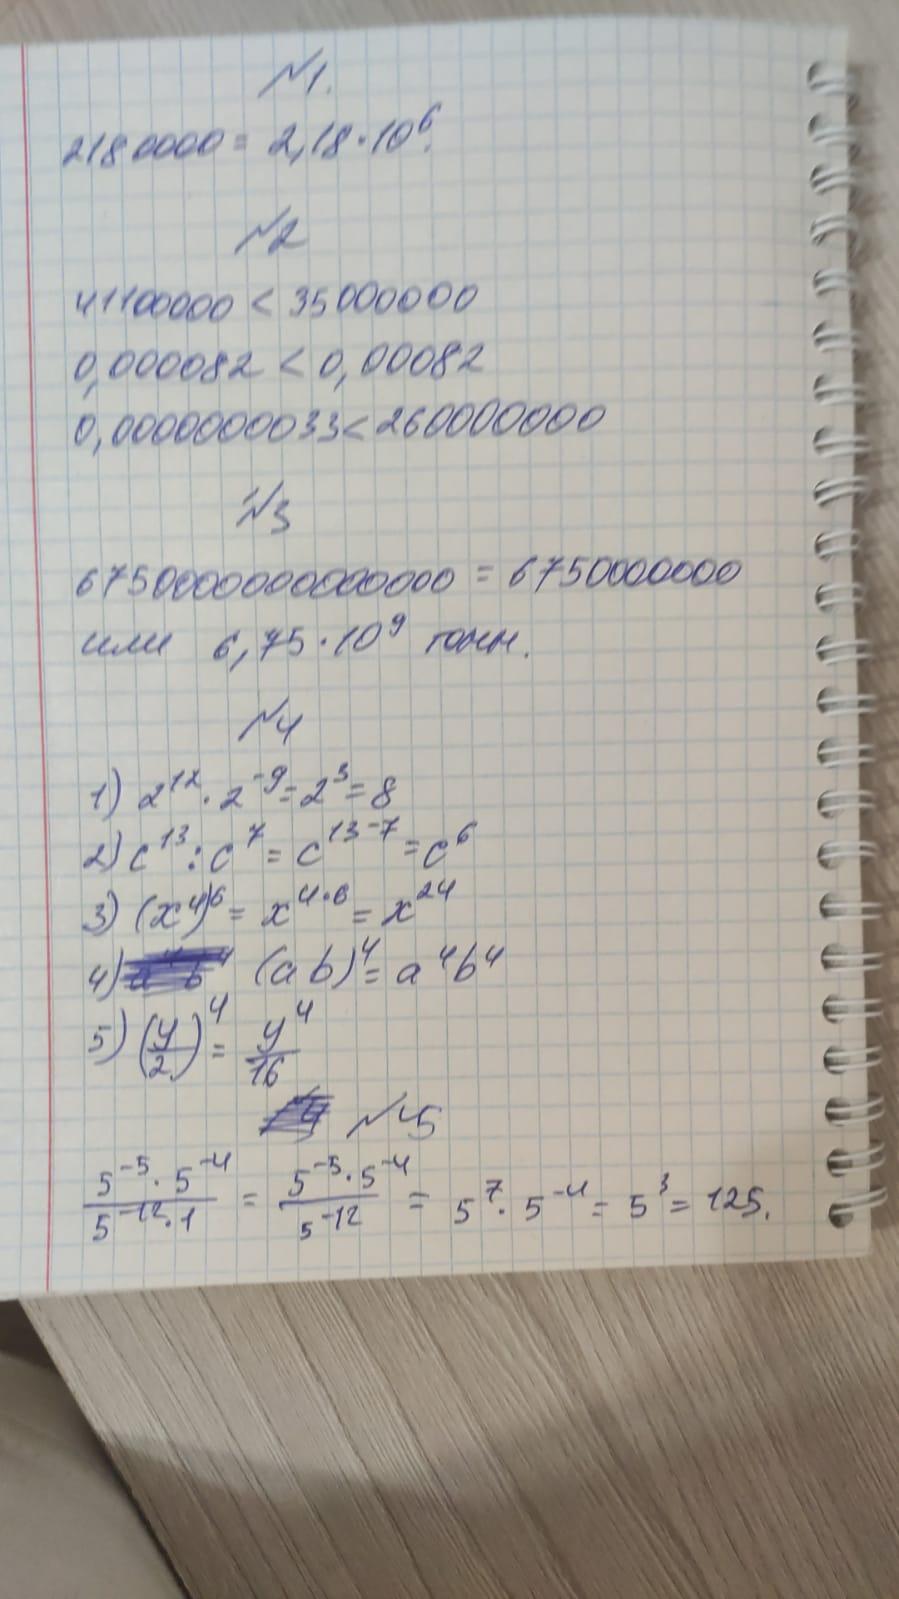 №1.
2180000 = 2,18·10⁶.
№2
41100000 < 35000000
0,000082 < 0,00082
0,0000000033 < 260000000
№3
6750000000000000 = 6750000000
или 6,75·10⁹ тонн.
№4
1) 2¹²·2⁻⁹=2³=8
2) c¹³:c⁷=c¹³⁻⁷=c⁶
3) (x⁴)⁶=x⁴·⁶=x²⁴
4) (ab)⁴=a⁴b⁴
5) (y/2)⁴ = y⁴/16
№5
5⁻⁵·5⁻⁴/5⁻¹²·1 = 5⁻⁵·5⁻⁴/5⁻¹² = 5⁷·5⁻⁴=5³=125.